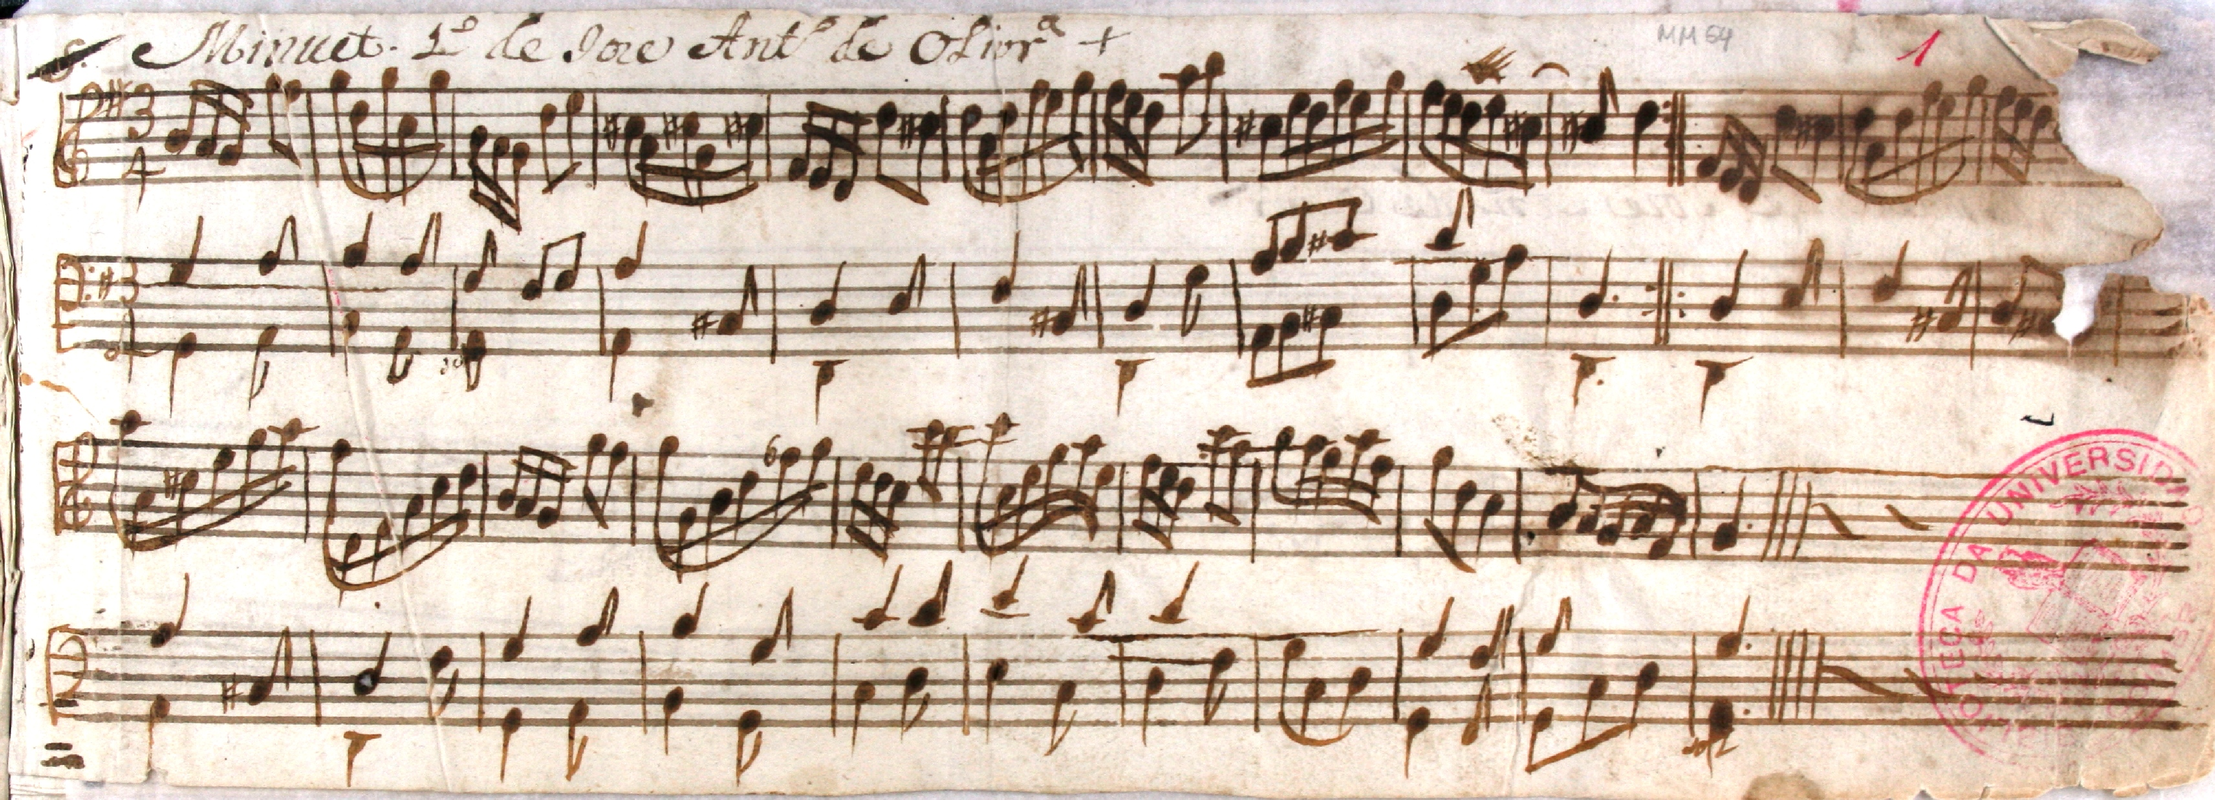 Minuet. 1º de Joze Antº de Olivrª +
MM 64
1
3
4
3
6
OTECA DA UNIVERSID